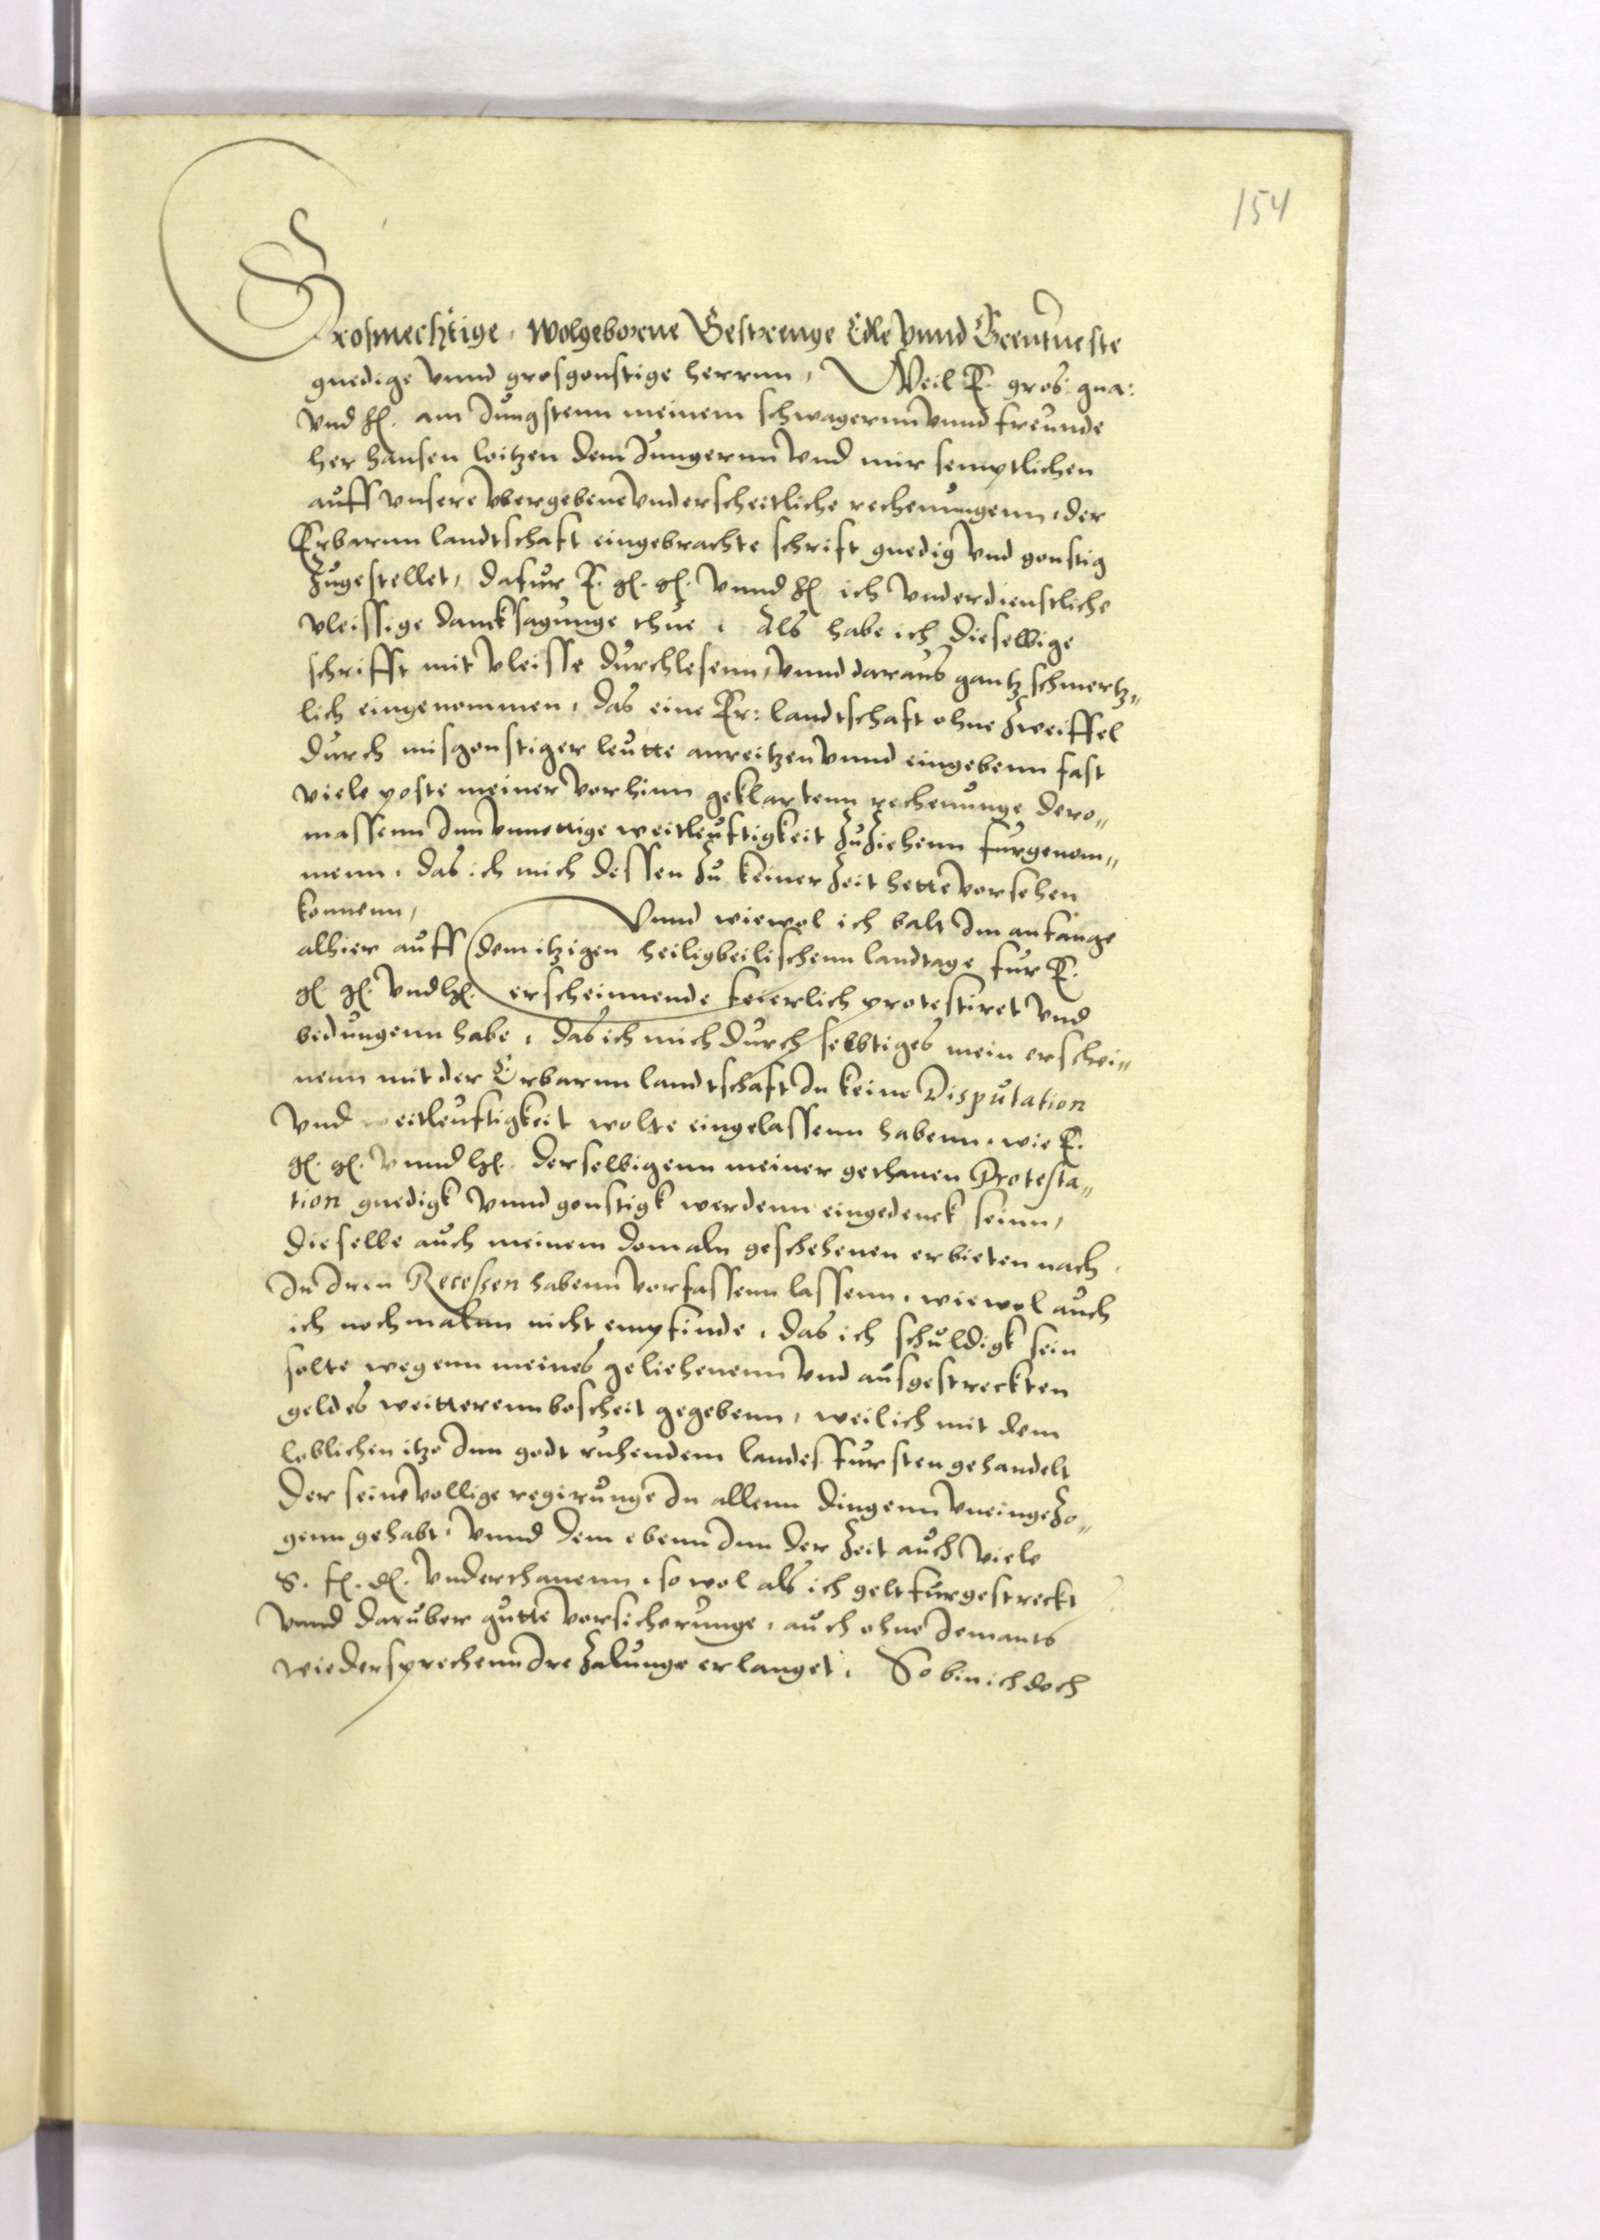 154
Grosmechtige, Wolgeborne Gestrenge Edle vnnd Erentueste
gnedige vnnd grosgonstige herrnn, Weil E. gros: gna:
vnd hl. am Jungstenn meinem schwagernn vnnd freunde
her hansen loitzen dem Jungernn vnd mir semptlichen
auff vnsere vbergebene vnderscheitliche rechenungenn, der
Erbarnn landtschaft eingebrachte schrift gnedig vnd gonstig
zugestellet, dafur E. gl. gl. vnnd hl ich vnderdienstliche
vleissige dancksagunge thue, Als habe ich dieselbige
schrifft mit vleisse durchlesenn, vnnd daraus gantz schmertz„
lich eingenommen, das eine Er: landtschaft ohne zweiffel
durch misgonstiger leutte anreitzen vnnd eingebenn fast
viele poste meiner vorhinn geklartenn rechenunge dero„
massenn Inn vnnottige weitleuftigkeit zuziehenn furgenom„
menn, das ich mich dessen zu keiner zeit hette vorsehen
konnenn, Vnnd wiewol ich balt Im anfange
alhier auff dem itzigen heiligbeilischenn landtage fur E.
gl. gl. vnd hl. erscheinnende feierlich protestiret vnd
bedungenn habe, das ich mich durch selbtiges mein erschei„
nenn mit der Erbarnn landtschaft In keine Disputation
vnd weitleuftigkeit wolte eingelassenn habenn, wie E.
gl. gl. vnnd hl. derselbigenn meiner gethanen Protesta„
tion gnedigk vnnd gonstigk werdenn eingedenck seinn,
dieselbe auch meinem domaln geschehenen erbieten nach
In Iren Recessen habenn vorfassenn lassenn, wiewol auch
ich nochmalnn nicht empfinde, das ich schuldigk sein
solte wegenn meines geliehenenn vnd ausgestreckten
geldes weitterenn bescheit gegebenn, weil ich mit dem
loblichen itzo Inn godt ruhendem landesfursten gehandelt
der seine vollige regirunge In allenn dingenn vneingezo„
genn gehabt, vnnd dem ebenn Inn der zeit auch viele
S. fl. dl. vnderthanenn, so wol als ich gelt furgestreckt
vnnd daruber gutte vorsicherunge, auch ohne Iemants
wiedersprechenn Ire zalunge erlanget, So bin ich doch